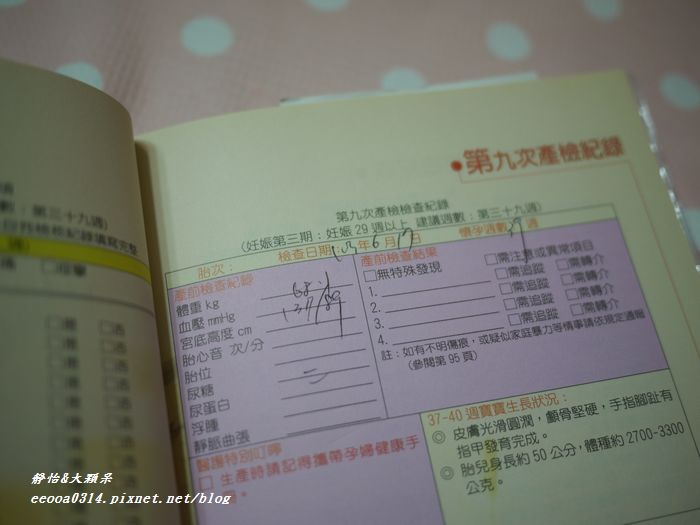 數：第三十九週)
白各檢核紀錄填寫完整
第九次產檢紀錄
第九次產檢檢查紀錄
(妊娠第三期：妊娠29週以上 建議週數：第三十九週)
胎次： 檢查日期：103年6月17日 懷孕週數 週
產前檢查紀錄
體重 kg
血壓 mmHg 137/89
宮底高度 cm
胎心音 次/分
胎位
尿糖
尿蛋白
浮腫
靜脈曲張
產前檢查結果
□無特殊發現 □需注意或異常項目
1. □需追蹤 □需轉介
2. □需追蹤 □需轉介
3. □需追蹤 □需轉介
4. □需追蹤 □需轉介
註：如有不明傷痕，或疑似家庭暴力等情事請依規定通報
(參閱第 95 頁)
醫護特別叮嚀
□ 生產時請記得攜帶孕婦健康手
。
37-40 週寶寶生長狀況：
◎ 皮膚光滑圓潤，顱骨堅硬，手指腳趾有
指甲發育完成。
◎ 胎兒身長約 50 公分，體種約 2700-3300
公克。
靜怡&大顆呆
eeooa0314.pixnet.net/blog